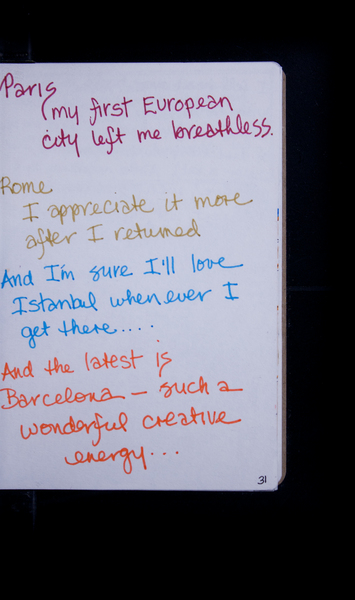 Paris
(my first European
city left me breathless.
Rome
I appreciate it more
after I returned
And I'm sure I'll love
Istanbul whenever I
get there....
And the latest is
Barcelona – such a
wonderful creative
energy...
31